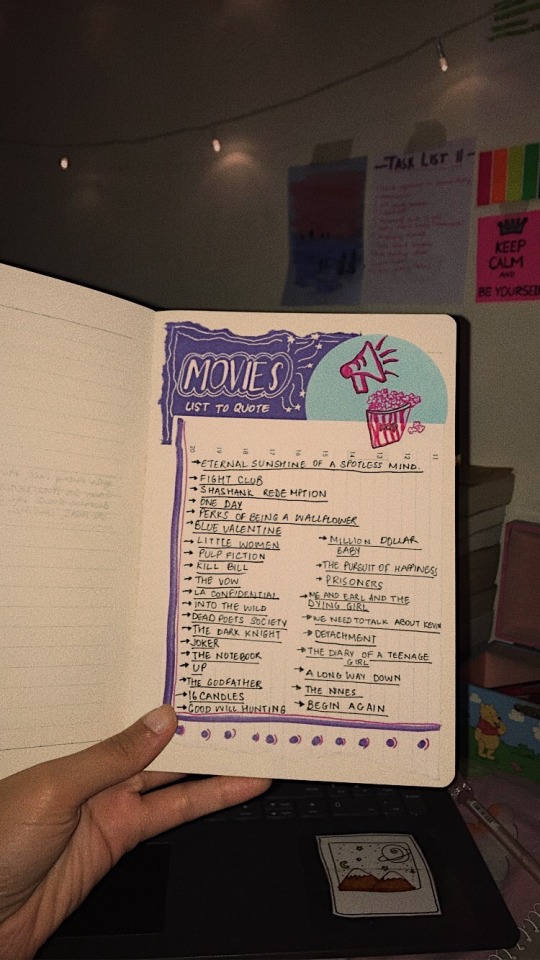 TASK LIST !!
KEEP
CALM
AND
BE YOURSELF
MOVIES
LIST TO QUOTE
20 19 18 17 16 15 14 13 12 11
→ETERNAL SUNSHINE OF A SPOTLESS MIND.
→FIGHT CLUB
→SHASHANK REDEMPTION
→ONE DAY
→PERKS OF BEING A WALLFLOWER
→BLUE VALENTINE
→LITTLE WOMEN
→PULP FICTION
→KILL BILL
→THE VOW
→LA CONFIDENTIAL
→INTO THE WILD
→DEAD POETS SOCIETY
→THE DARK KNIGHT
→JOKER
→THE NOTEBOOK
→UP
→THE GODFATHER
→16 CANDLES
→GOOD WILL HUNTING
→MILLION DOLLAR
BABY
→THE PURSUIT OF HAPPINESS
→PRISONERS
→ME AND EARL AND THE
DYING GIRL
→WE NEED TO TALK ABOUT KEVIN
→DETACHMENT
→THE DIARY OF A TEENAGE
GIRL
→A LONG WAY DOWN
→THE
→BEGIN AGAIN